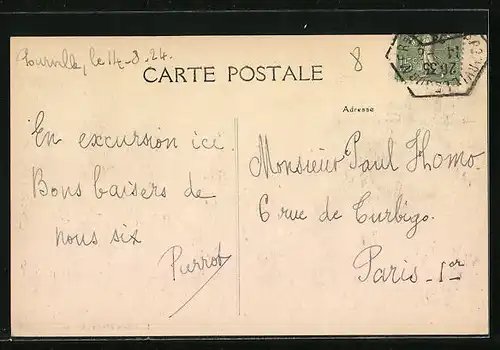 Pourville, le 14-8-24.
8
CARTE POSTALE
Adresse
En excursion ici.
Bons baisers de
nous six
Pierrot
Monsieur Paul Homo.
6 rue de Turbigo.
Paris - 1er